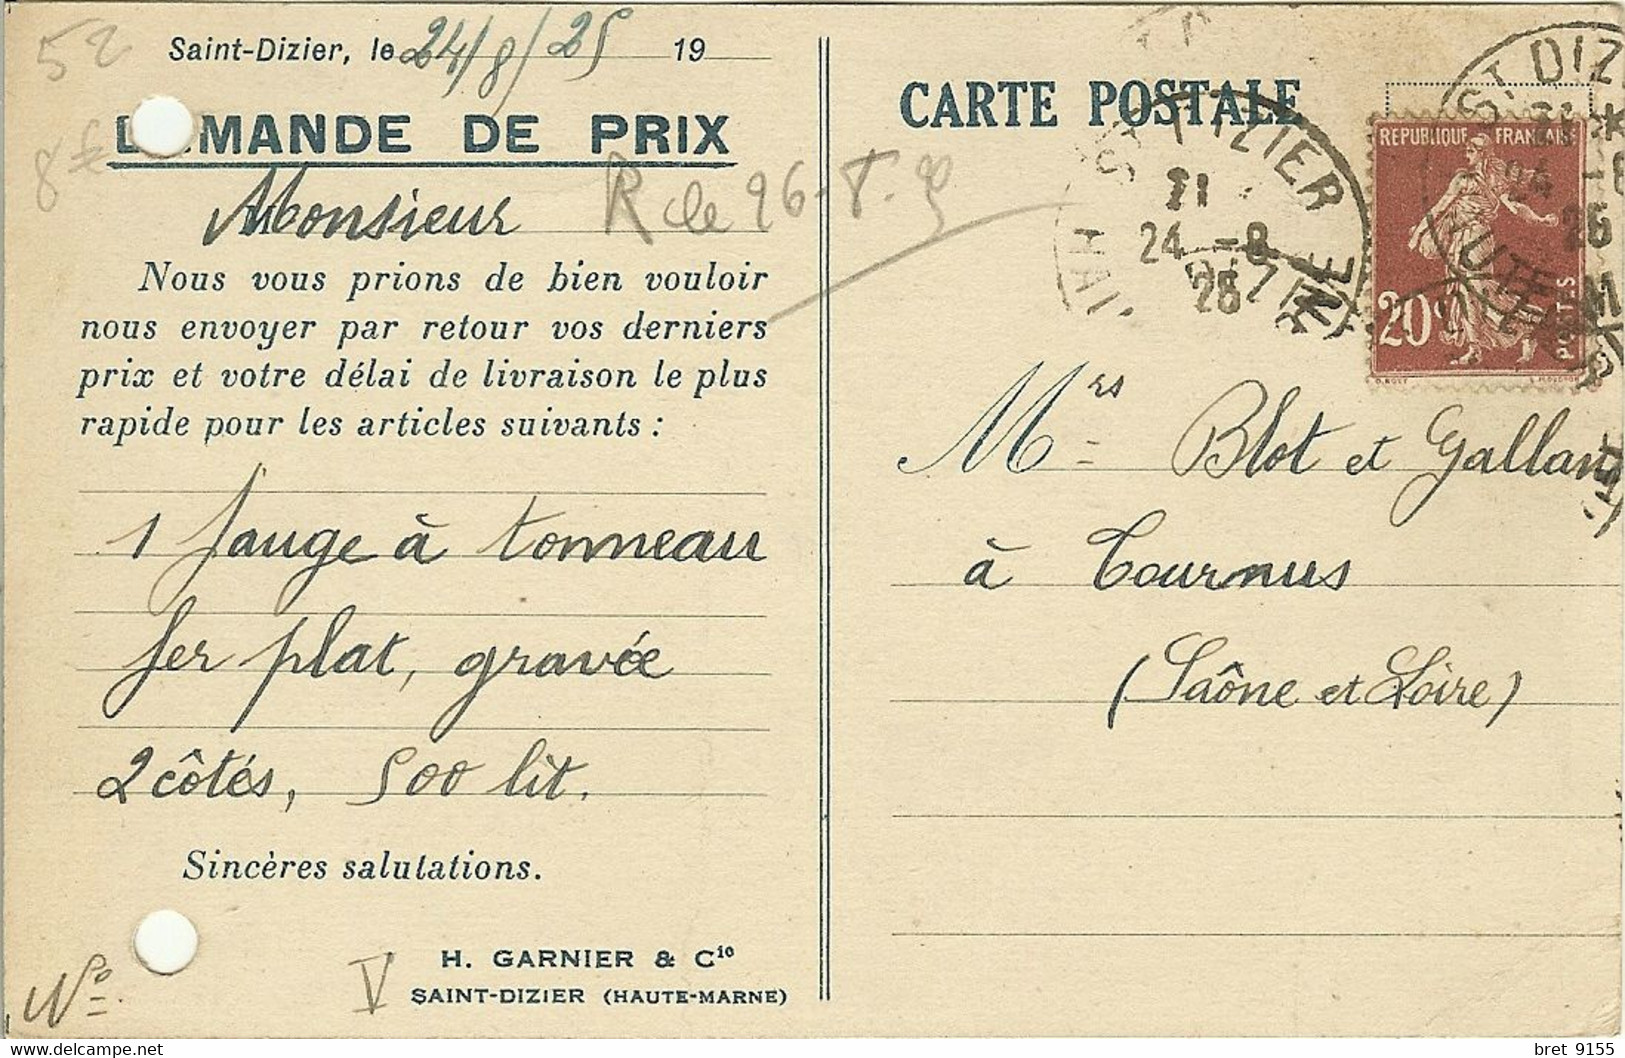 52
Saint-Dizier, le 24/8/25 19
DEMANDE DE PRIX
8
Monsieur
R le 26-8-25
Nous vous prions de bien vouloir
nous envoyer par retour vos derniers
prix et votre délai de livraison le plus
rapide pour les articles suivants :
1 Jauge à tonneau
fer plat, gravée
2 côtés, 500 lit.
Sincères salutations.
V
H. GARNIER & Cie
SAINT-DIZIER (HAUTE-MARNE)
No
CARTE POSTALE
ST DIZIER
24 -8
25
REPUBLIQUE FRANÇAISE
20c
POSTES
ST DIZ
24 -8
25
Mrs Blot et Gallan
à Tournus
(Saône et Loire)
bret 9155